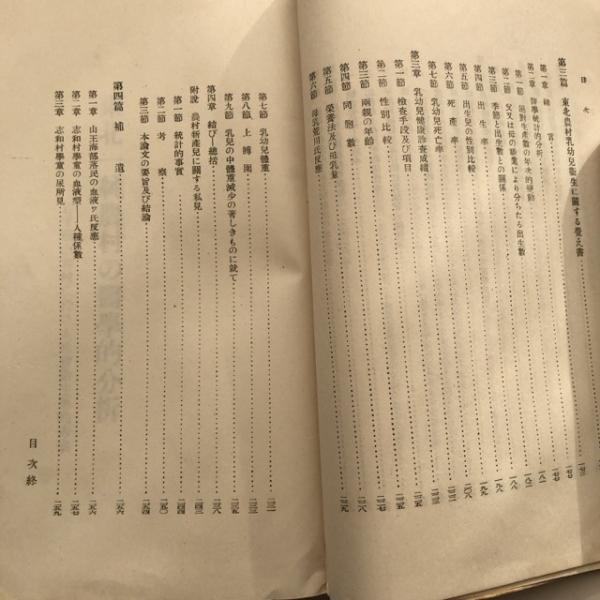 目次
第三篇 東北農村乳幼兒衞生に關する覺え書
第一章 緒言
第二章 醫學統計的分析
第一節 絕對生產數の年次的變動
第二節 父又は母の職業により分ちたる出生數
第三節 季節と出生數との關係
第四節 出生率
第五節 出生兒の性別比較
第六節 死產率
第七節 乳幼兒死亡率
第三章 乳幼兒健康診査成績
第一節 檢査手段及び項目
第二節 性別比較
第三節 兩親の年齡
第四節 同胞數
第五節 榮養法及び母乳量
第六節 母乳荒川氏反應
第七節 乳幼兒體重
第八節 上膊圍
第九節 乳兒の中體重減少の著しきものに就て
第四章 結び—總括
附說 農村新產兒に關する私見
第一節 統計的事實
第二節 考察
第三節 本論文の要旨及び結論
第四篇 補遺
第一章 山王海部落民の血液ワ氏反應
第二章 志和村學童の血液型—人種係數
第三章 志和村學童の尿所見
目次終